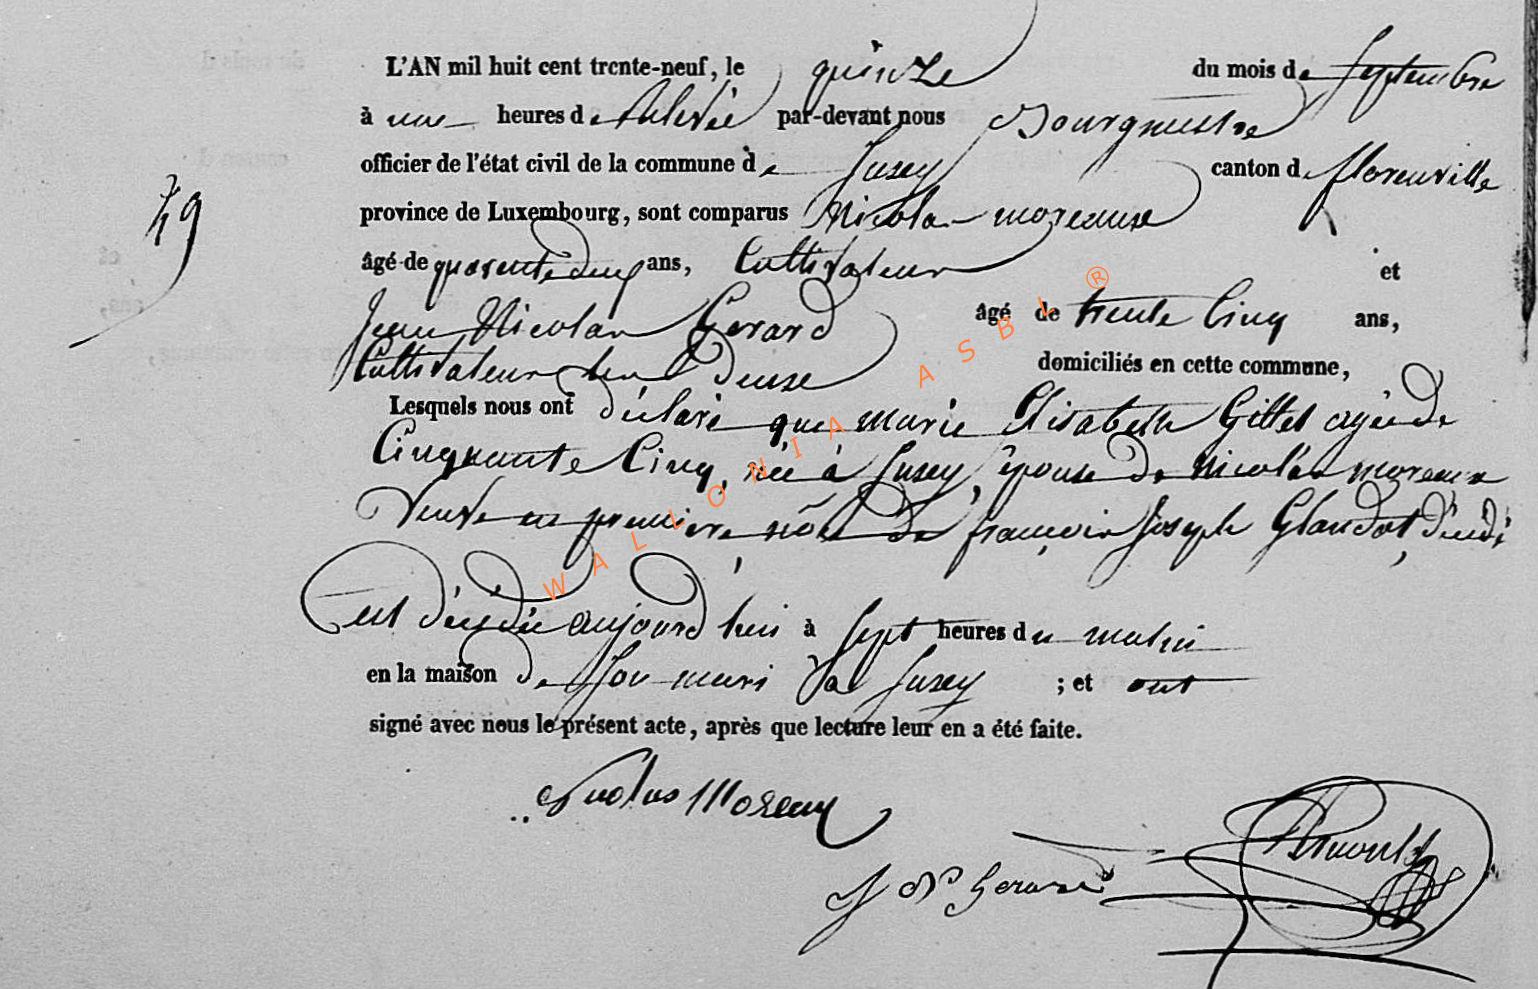 L'AN mil huit cent trente-neuf, le quinze du mois de Septembre
à une heures de Relevée par-devant nous Bourgmestre
officier de l'état civil de la commune de Jusey canton de florenville
49
province de Luxembourg, sont comparus Nicolas moreaux
âgé de quarente deux ans, Cultivateur et
Jean Nicolas Gerard âgé de trente Cinq ans,
Cultivateur tous deux domiciliés en cette commune,
Lesquels nous ont déclaré que marie Elisabeth Gillet agée de
Cinquante Cinq, née à Jusey, épouse de Nicolas moreaux
Veuve en premiere nôce de françois Joseph Glaudot,
est décédée aujourd'hui à Sept heures du matin
en la maison de Son mari à Jusey ; et ont
signé avec nous le présent acte, après que lecture leur en a été faite.
Nicolas Moreaux
J N Gerard
WALLONIA ASBL ®